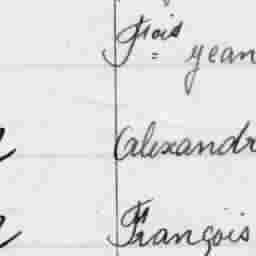 Fcois
= yean
alexandr
François